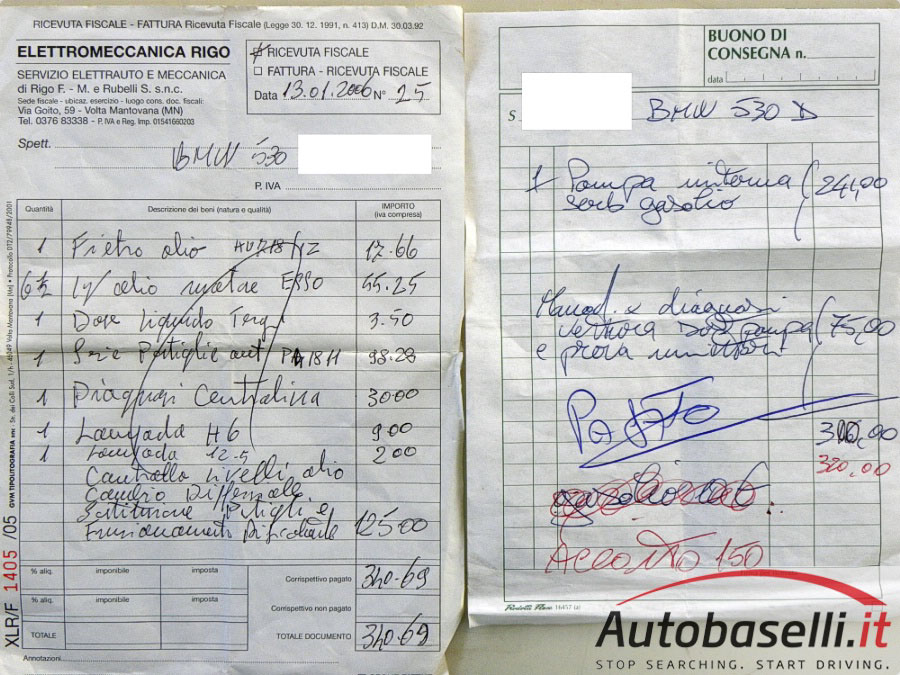 RICEVUTA FISCALE - FATTURA Ricevuta Fiscale (Legge 30. 12. 1991, n. 413) D.M. 30.03.92
ELETTROMECCANICA RIGO
SERVIZIO ELETTRAUTO E MECCANICA
di Rigo F. - M. e Rubelli S. s.n.c.
Sede fiscale - ubicaz. esercizio - luogo cons. doc. fiscali:
Via Goito, 59 - Volta Mantovana (MN)
Tel. 0376 83338 - P. IVA e Reg. Imp. 01541660203
RICEVUTA FISCALE
FATTURA - RICEVUTA FISCALE
Data 13.01.2006 N° 25
Spett. BMW 530
P. IVA
Quantità Descrizione dei beni (natura e qualità) IMPORTO (iva compresa)
1 Filtro olio 17.66
6½ olio motore ESSO 55.25
1 Dose liquido Tergi 3.50
1 Serie Pastiglie ant 98.28
1 Diagnosi Centralina 30.00
1 Lampada H6 9.00
1 Lampada 2.00
Controllo livelli olio
Cambio
Sostituzione Pastiglie
Funzionamento 125.00
% aliq. imponibile imposta
Corrispettivo pagato 340.69
% aliq. imponibile imposta
Corrispettivo non pagato
TOTALE
TOTALE DOCUMENTO 340.69
Annotazioni
XLR/F 1405 /05
GVM TIPOLITOGRAFIA
BUONO DI
CONSEGNA n.
data
S
BMW 530 D
1 Pompa interna 241,00
serb gasolio
Manod. x diagnosi
pompa 75,00
e prova
PAGATO
320,00
Acconto 150
16457 (a)
Autobaselli.it
STOP SEARCHING. START DRIVING.